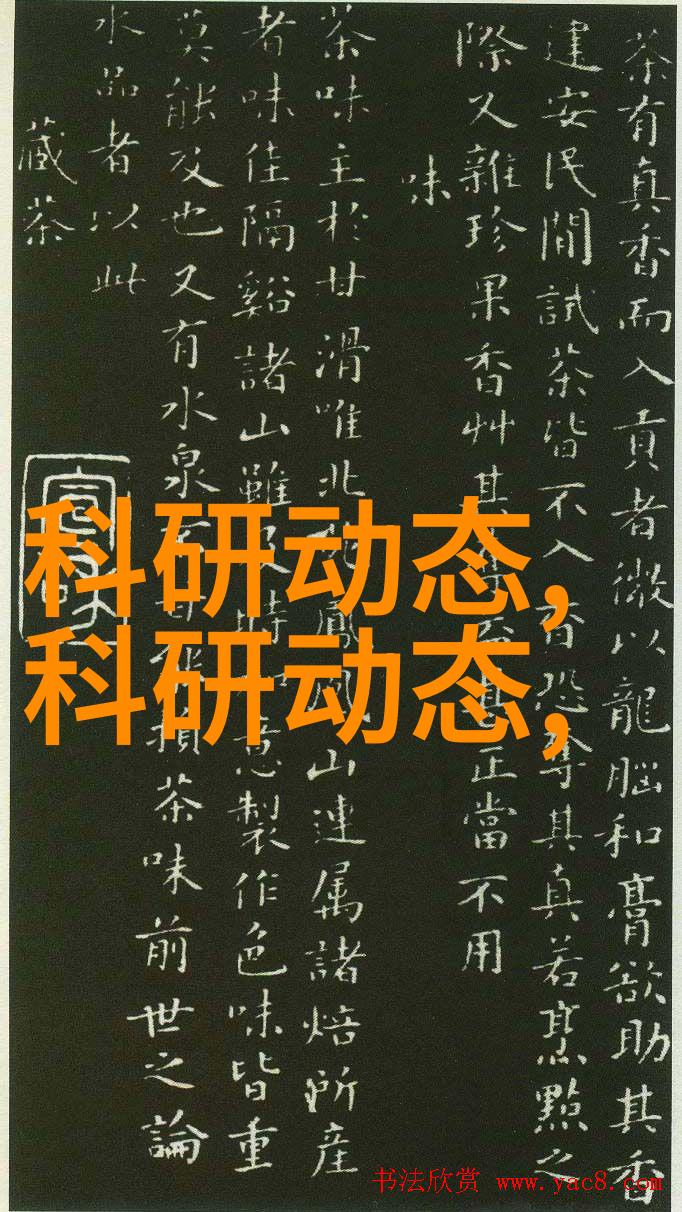 茶有真香而入貢者微以龍腦和膏欲助其香
建安民間試茶皆不入香恐奪其真若烹點之
際又雜珍果香艸其正當不用
味
茶味主於甘滑唯北鳳山連属諸焙所産
者味佳隔谿諸山雖時意製作色味皆重
莫能及也又有水泉損茶味前世之論
水品者以此
藏茶
科研动态,
科研动态,
书法欣赏 www.yac8.com